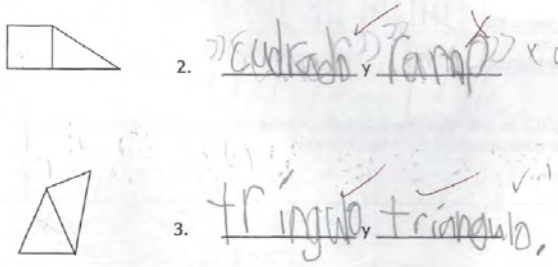 2. "cuadrado" y "ramp"
3. tríngulo y tríangulo.